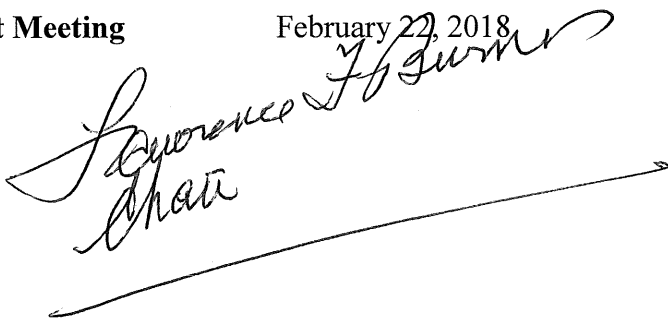 t Meeting February 22, 2018
Lawrence F Burns
Chair